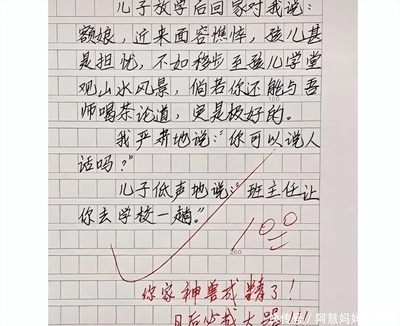 儿子放学后回家对我说：
额娘，近来面容憔悴，孩儿甚
是担忧，不如移步至孩儿学堂
观山水风景，倘若你还能与吾
师喝茶论道，更是极好的。
我严肃地说："你可以说人
话吗？"
儿子低声地说："班主任让
你去学校一趟。"
100
你家神兽成精了！
日后必成大器！！
阿慧妈妈